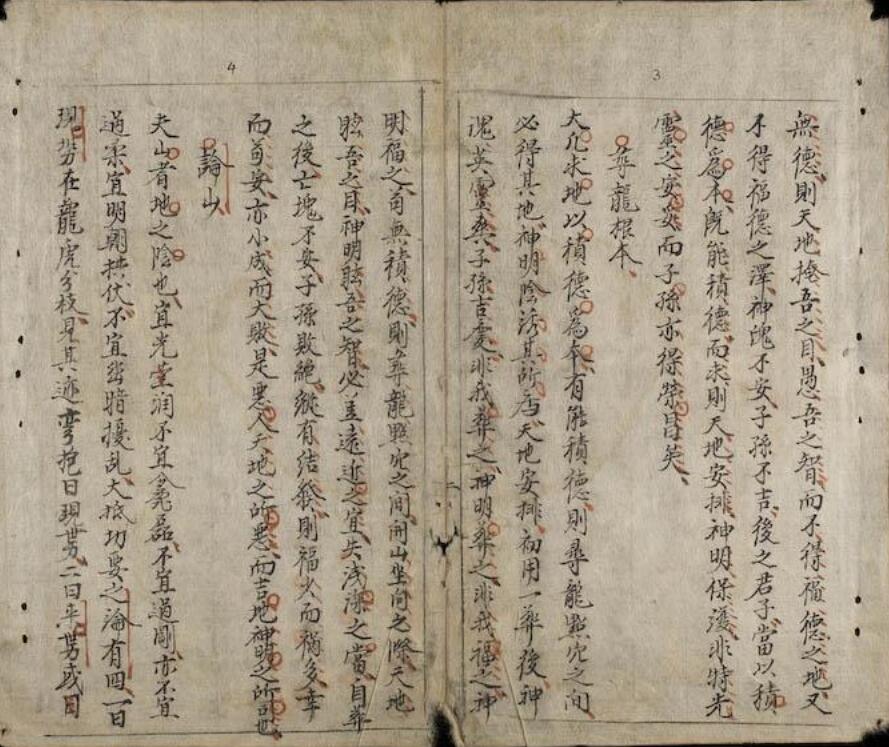 3
無德則天地掩吾之目愚吾之智而不得福德之地又
不得福德之澤神魄不安子孫不吉後之君子當以積
德為本既能積德而求則天地安排神明保護非特先
靈之安妥而子孫亦得榮昌矣
尋龍根本
大凡求地以積德為本有能積德則尋龍點穴之間
必得其地神明陰誘其所居天地安排初用一葬後神
魂英靈興子孫吉慶非我葬之神明葬之非我福之神
4
明福之苟無積德則尋龍點穴之間開山坐向之際天地
眩吾之目神明眩吾之智必差遠近之宜失淺深之當自葬
之後亡魂不安子孫敗絕縱有結發則福少而禍多幸
而苟安亦小成而大敗是惡人天地之所惡而吉地神明之所司也
論山
夫山者地之陰也宜光瑩潤不宜麄磊不宜過剛亦不宜
過柔宜明朝拱伏不宜幽暗擾乱大抵切要之論有四一曰
現势在龍虎分枝見其迹彎抱曰現势二曰平势或曰